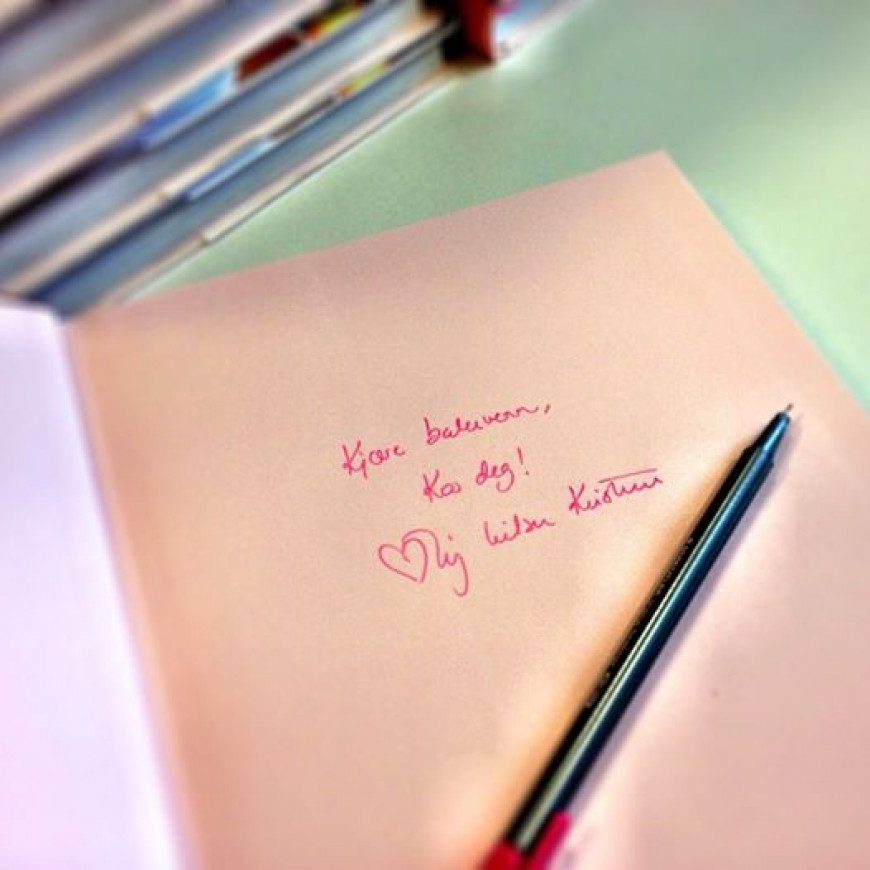 Kjære bakevenn,
Kos deg!
hilsen Kristine